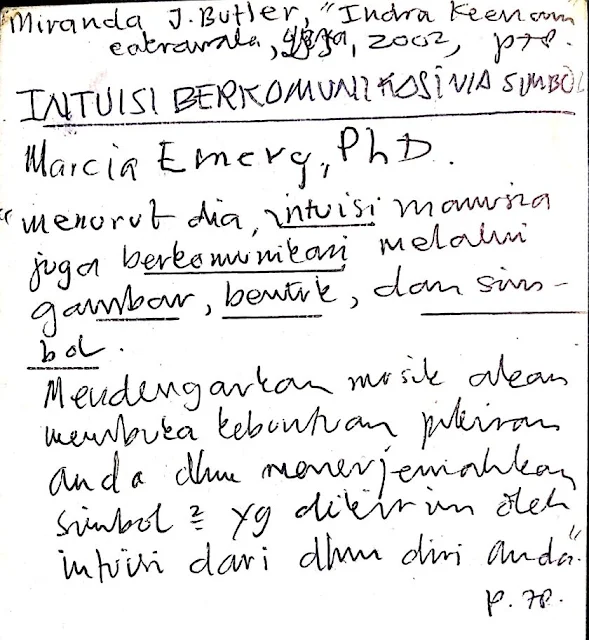 Miranda J. Butler, "Indra Keenam
cakrawala, Yogya, 2002, p78.
INTUISI BERKOMUNIKASI VIA SIMBOL
Marcia Emery, PhD.
"menurut dia, intuisi manusia
juga berkomunikasi melalui
gambar, bentuk, dan sim-
bol.
Mendengarkan musik akan
membuka kebuntuan pikiran
anda dlm menerjemahkan
simbol ² yg dikirim oleh
intuisi dari dlm diri anda."
p. 78.